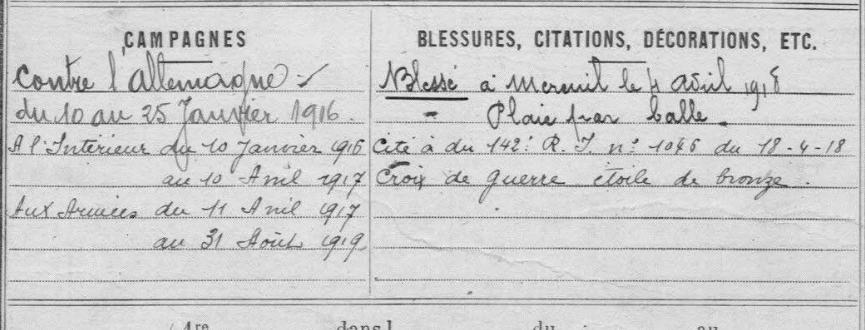 CAMPAGNES
contre l'allemagne
du 10 au 25 Janvier 1916.
A l'Intérieur du 10 Janvier 1916
au 10 Avril 1917
Aux Armées du 11 Avril 1917
au 31 Août 1919
BLESSURES, CITATIONS, DÉCORATIONS, ETC.
Blessé à le 4 avril 1918
- Plaie par balle.
Cité à du 142e R. I. n° 1046 du 18-4-18
Croix de guerre étoile de bronze.
dans l du au